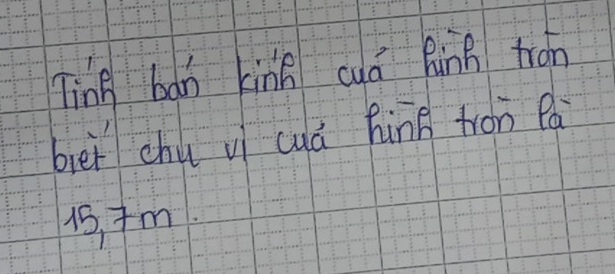 Tính bán kính cuả hình tròn
biết chu vi cuả hình tròn là
15,7m.